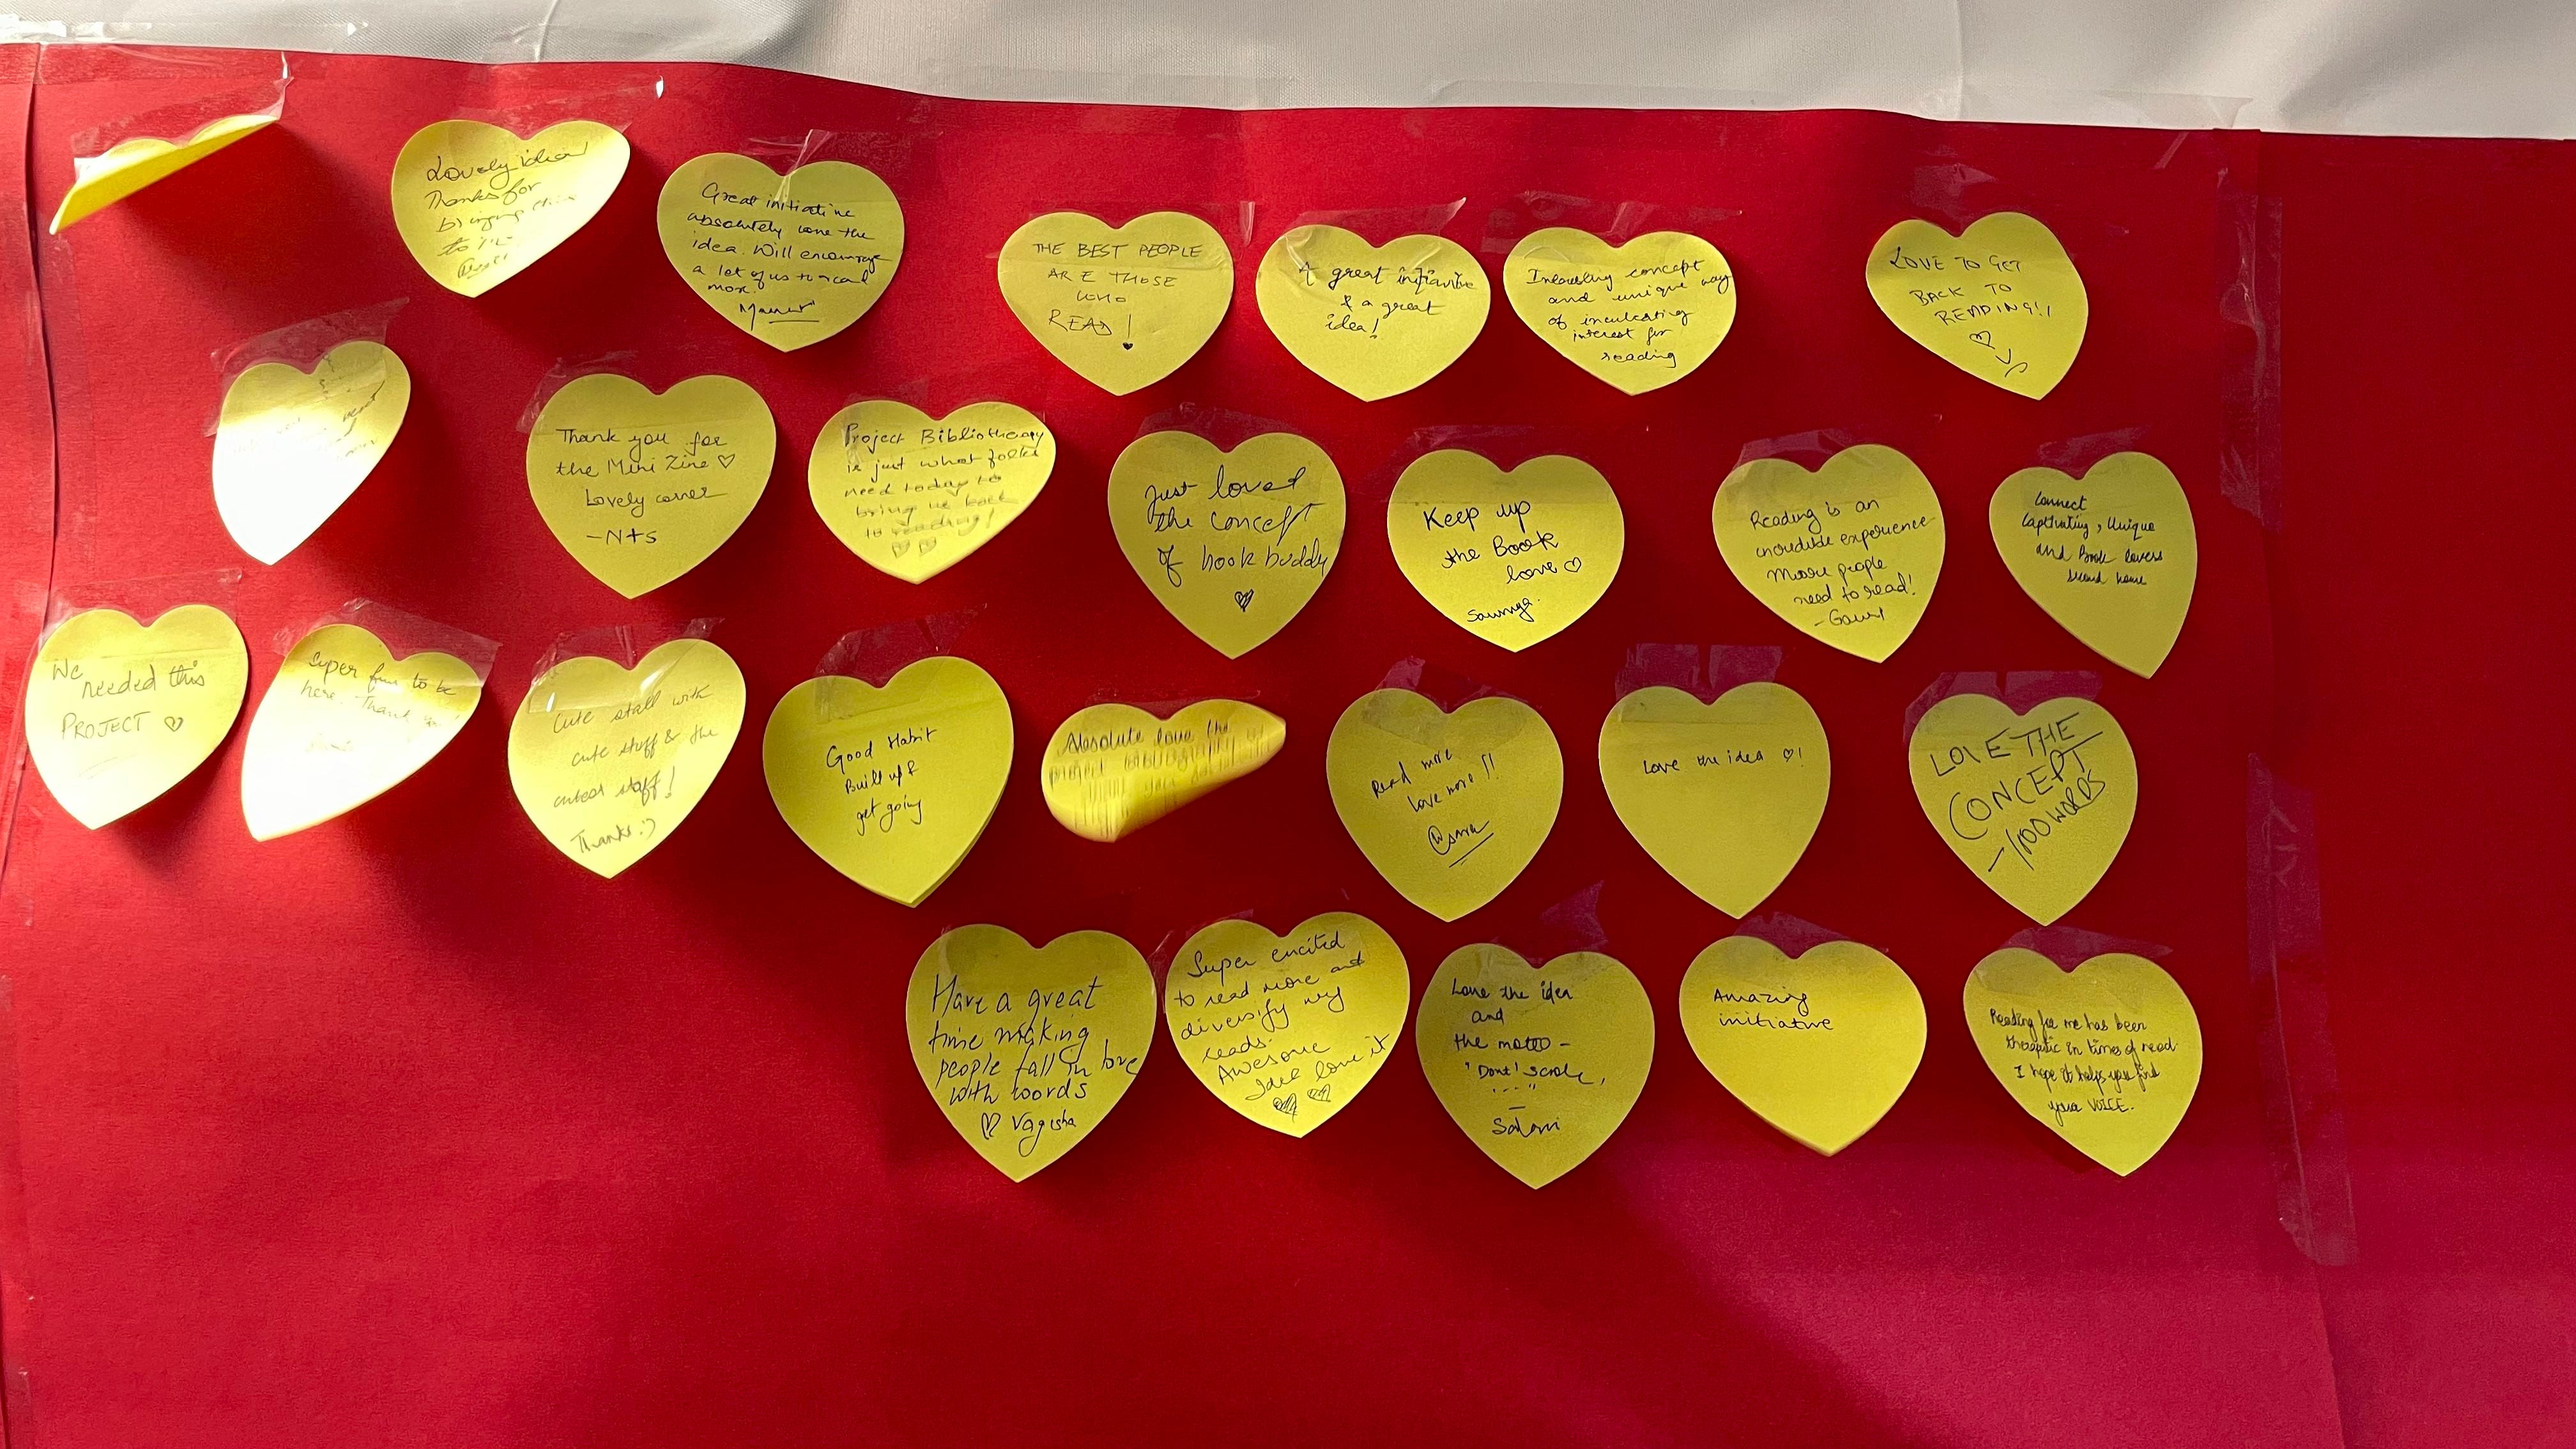 Lovely idea!
Thanks for
bringing this
to
Great initiative
absolutely love the
idea. Will encourage
a lot of us to read
more.
THE BEST PEOPLE
ARE THOSE
WHO
READ!
A great initiative
& a great
idea!
Interesting concept
and unique way
of inculcating
interest for
reading
LOVE TO GET
BACK TO
READING!!
Thank you for
the Mini Zine ♡
Lovely corner
-N+S
Project Bibliotherapy
is just what folks
need today to
bring us back
to reading!
♡♡
Just loved
the concept
of book buddy
♡
Keep up
the Book
love ♡
Saumya.
Reading is an
incredible experience
More people
need to read!
-Gauri
Connect
Captivating, Unique
and Book lovers
second home
We
needed this
PROJECT ♡
Super fun to be
here. Thank you!
Cute stall with
cute stuff & the
cutest staff!
Thanks :)
Good Habit
Build up &
get going
Absolute love the
project
Read more
love more!!
Love the idea ♡!
LOVE THE
CONCEPT
-100 WORDS
Have a great
time making
people fall in love
with words
♡ Vagisha
Super excited
to read more and
diversify my
reads.
Awesome
Idea love it
♡ ♡
Love the idea
and
the motto -
"Dont' scroll,
..."
Amazing
initiative
Reading for me has been
therapeutic in times of need.
I hope it helps you find
your VOICE.